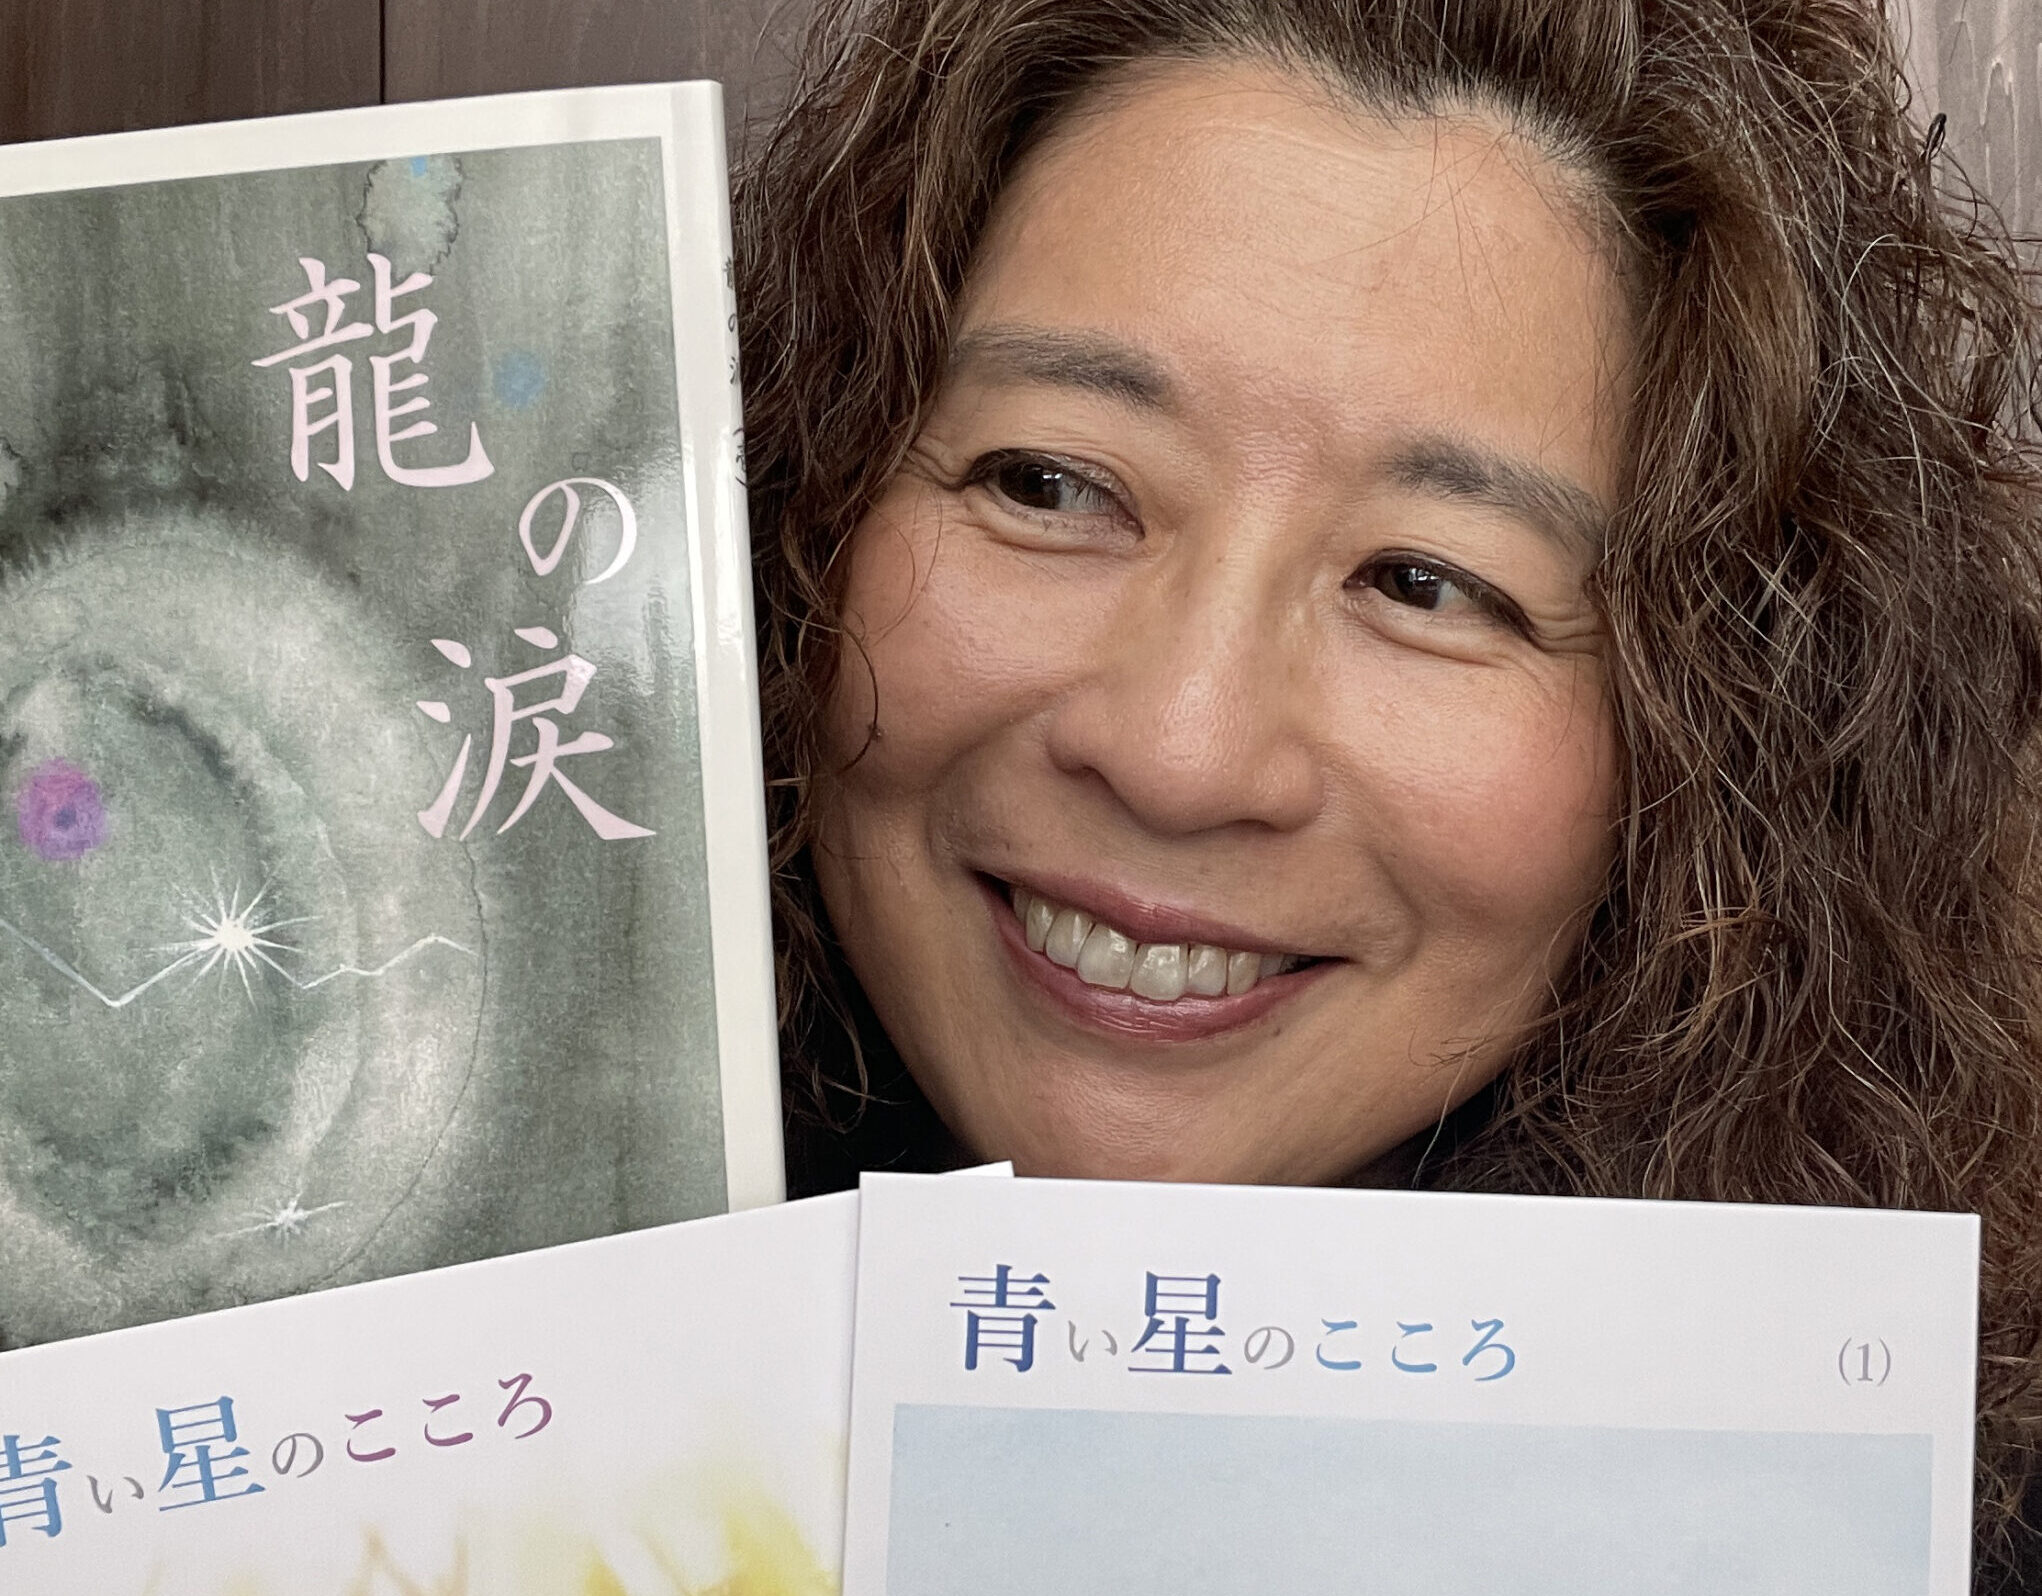 龍の涙
青い星のこころ
青い星のこころ
(1)